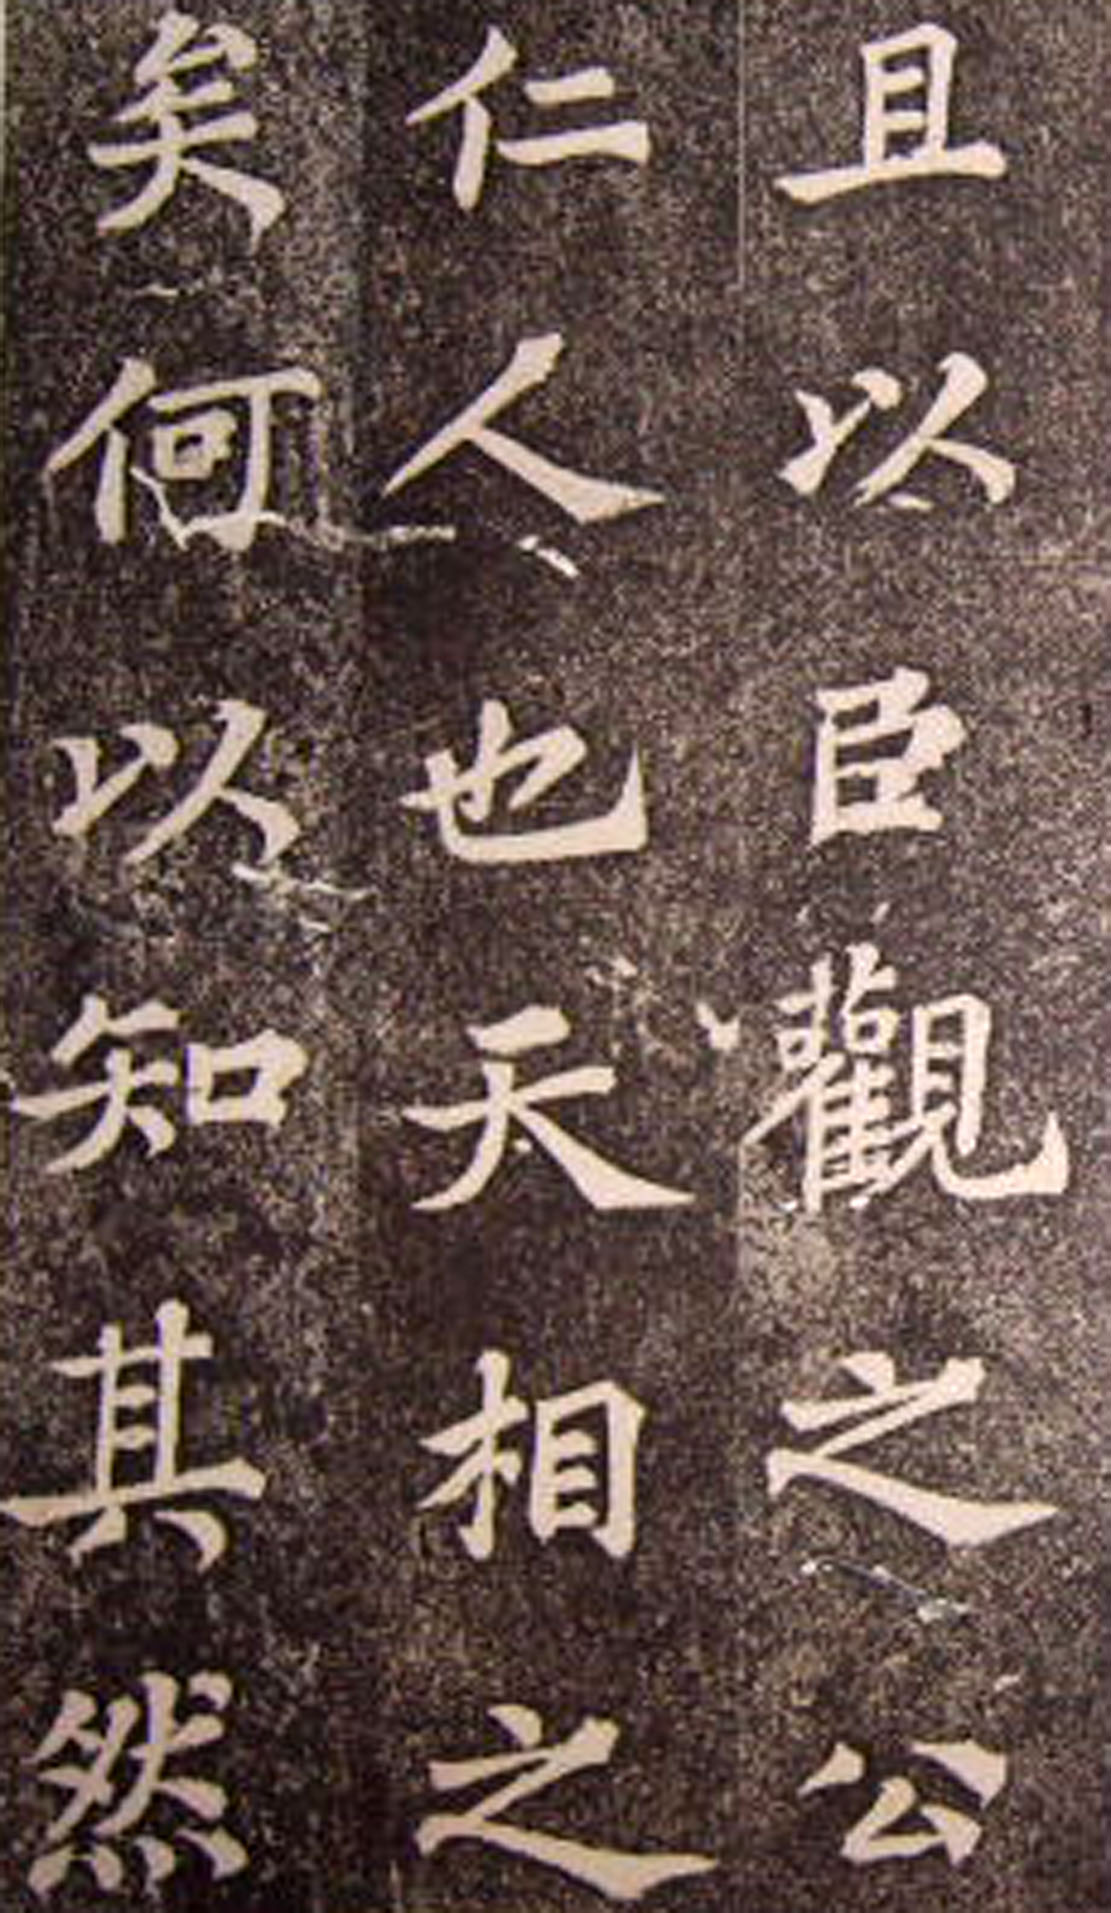 且以臣觀之公
仁人也天相之
矣何以知其然